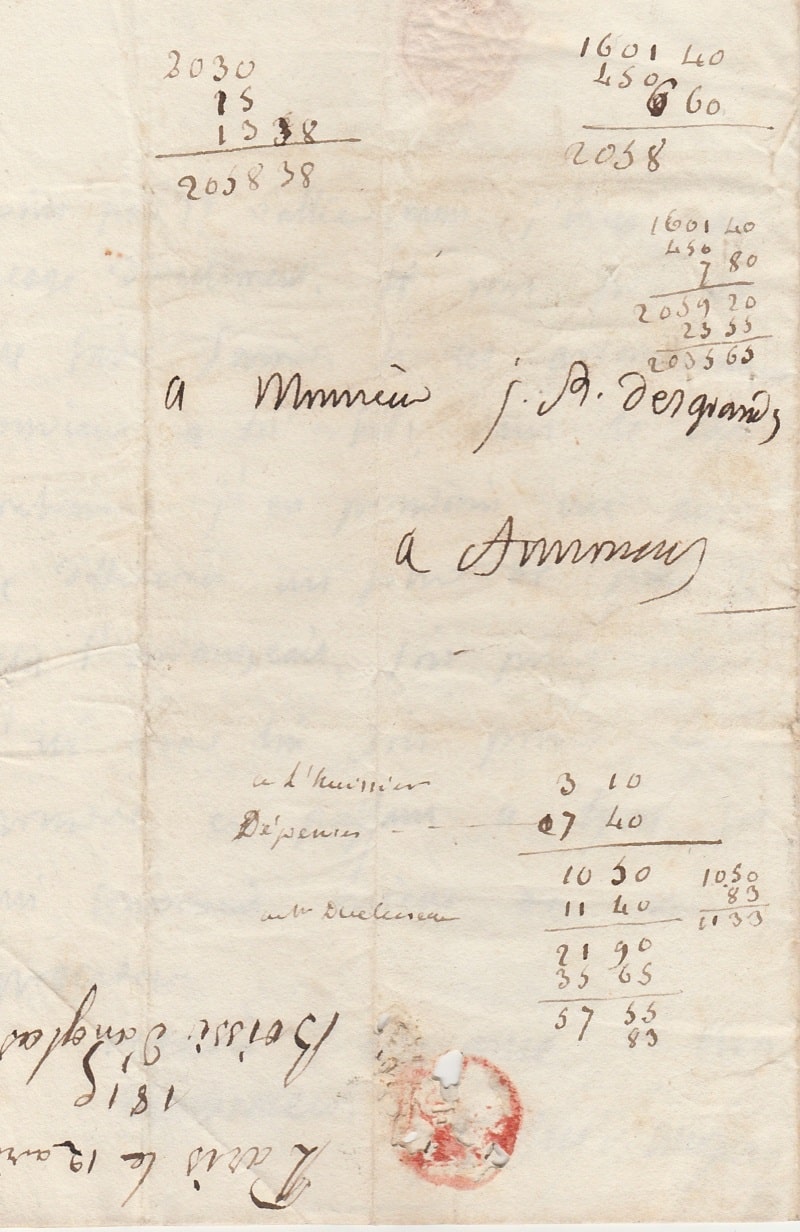 2030
15
13 38
2058 38
1601 40
450
6 60
2058
1601 40
450
7 80
2059 20
23 55
2035 65
a Monsieur j. A. desgrands
a Annonay
a L'huissier 3 10
Dépenses 07 40
10 50
11 40
21 90
35 65
57 55
83
1050
83
1133
Paris le 12 avri
1815
Boissi d'anglas